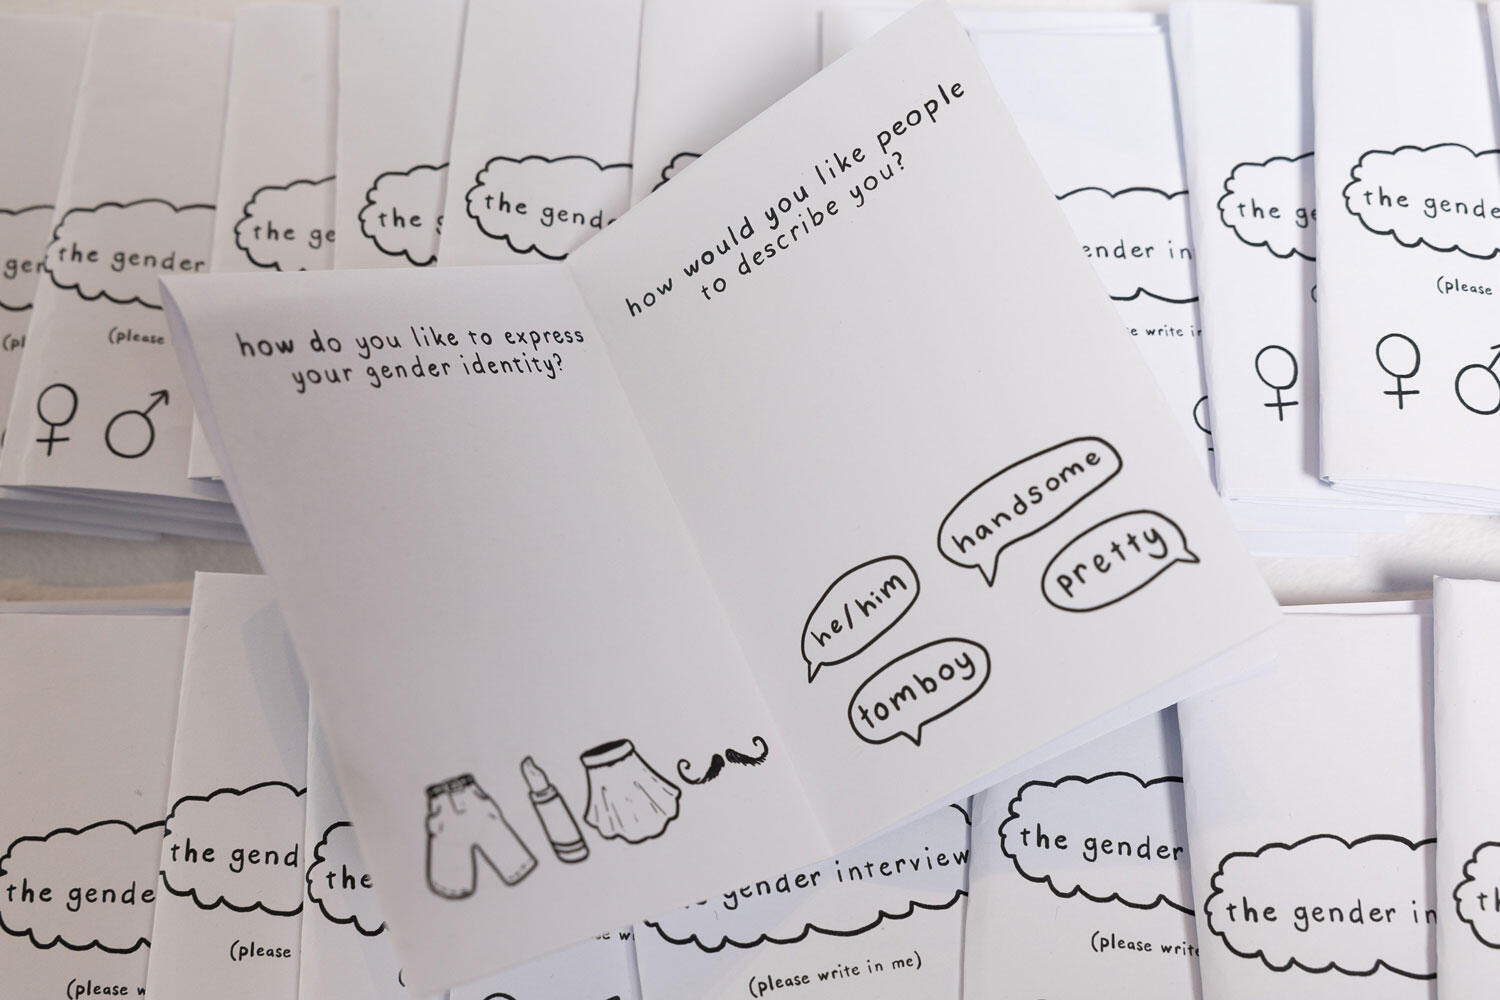 the gender
(please
the ge
the g
the gend
how would you like people
to describe you?
how do you like to express
your gender identity?
handsome
pretty
he/him
tomboy
gender in
write in
the ge
the gende
(please
the gende
(please w
the gend
(please
the
gender interview
(please write in me)
the gender
(please write
the gender in